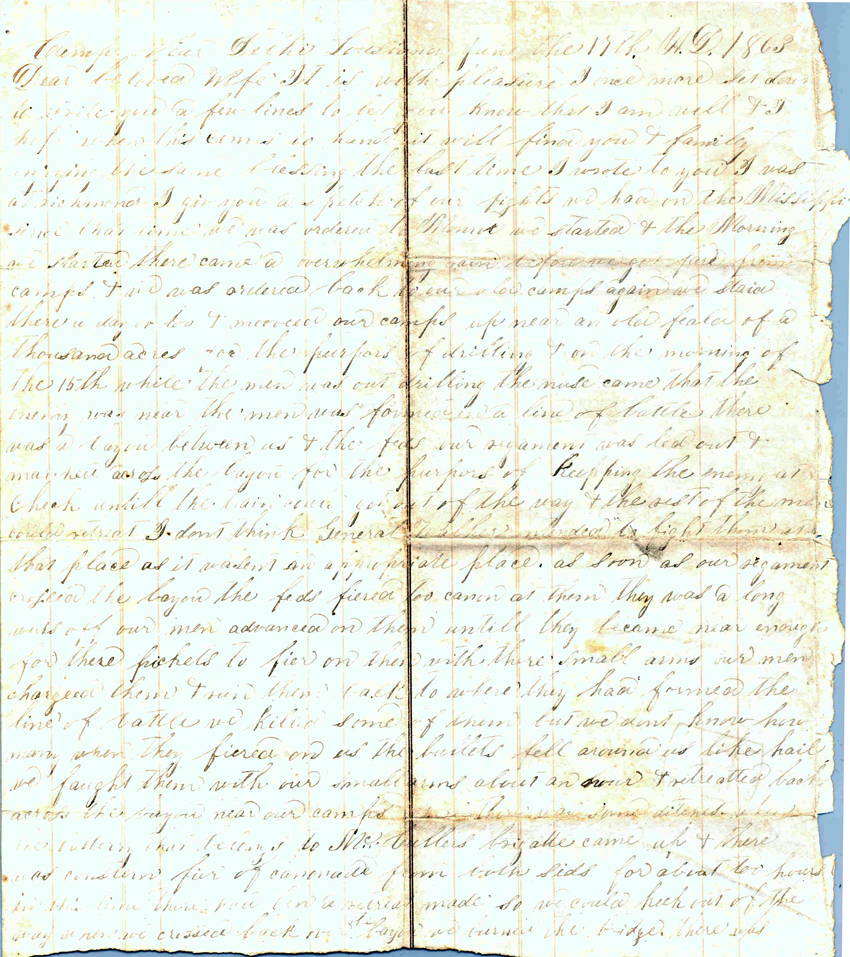 Camp Near Delhi Louisiana June the 17th A.D. 1863
Dear beloved Wife It is with pleasure I once more set down
to write you a few lines to let you know that I am well & I
hope when this comes to hand it will find you & family
enjoying the same blessing the last time I wrote to you I was
at Richmond I giv you a sketch of our fights we had on the Mississippi
since that time we was ordered to we started & the Morning
we started there came a overwhelming rain before we got fire from
camps & we was ordered back to our old camps again we staid
there a day or too & mooved our camps up near an old feald of a
thousand acres for the purpors of drilling & on the morning of
the 15th while the men was out drilling the nuse came that the
enemy was near the men was formed in a line of battle there
was a bayou between us & the feds our regament was led out &
marched across the bayou for the purpors of keepping the enemy at
check untill the train could get out of the way & the rest of the men
could retreat I dont think General intended to fight them at
that place as it wasent an appropriate place. as soon as our regament
crossed the bayou the feds fiered too canon at them they was a long
ways off our men advanced on them untill they became near enough
for there pickets to fier on them with there small arms our men
chargeed them & run them back to where they had formed the
line of battle we killed some of them but we dont know how
many when they fiered on us the bullets fell around us like hail
we faught them with our small arms about an hour & retreatted back
across the bayou near our camps there was some ditches
the battery that belongs to McCullers brigade came up & there
was constern fier of canonade from both sids for about too hours
in this time there had bin a retreat made so we could keep out of the
way when we crossed back over the bayou we burned the bridge there was